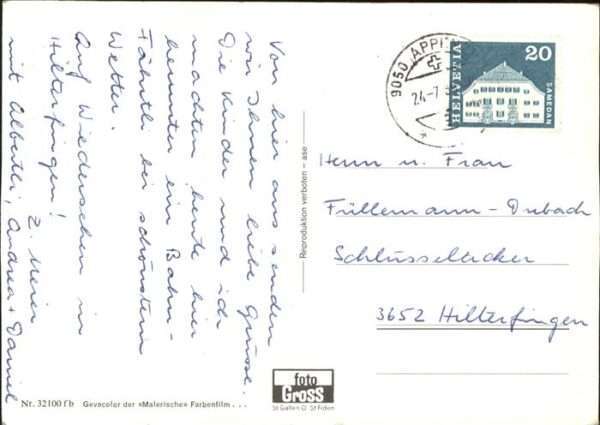 Von hier aus senden
wir Ihnen liebe Grüsse.
Die Kinder und ich
machten heute hier
herunter ein Bahn-
Fährtli bei schönstem
Wetter.
Auf Wiedersehen in
Hilterfingen!
Z. Meier
mit Albertli, Andrea + Daniel
9050 APPE
24.-7
HELVETIA
20
SAMEDAN
Herrn u. Frau
Füllemann-Dubach
Schlüsselacker
3652 Hilterfingen
Reproduktion verboten – ase
foto
Gross
St Gallen O St Fiden
Nr. 32100 fb Gevacolor der «Malerische» Farbenfilm . . .